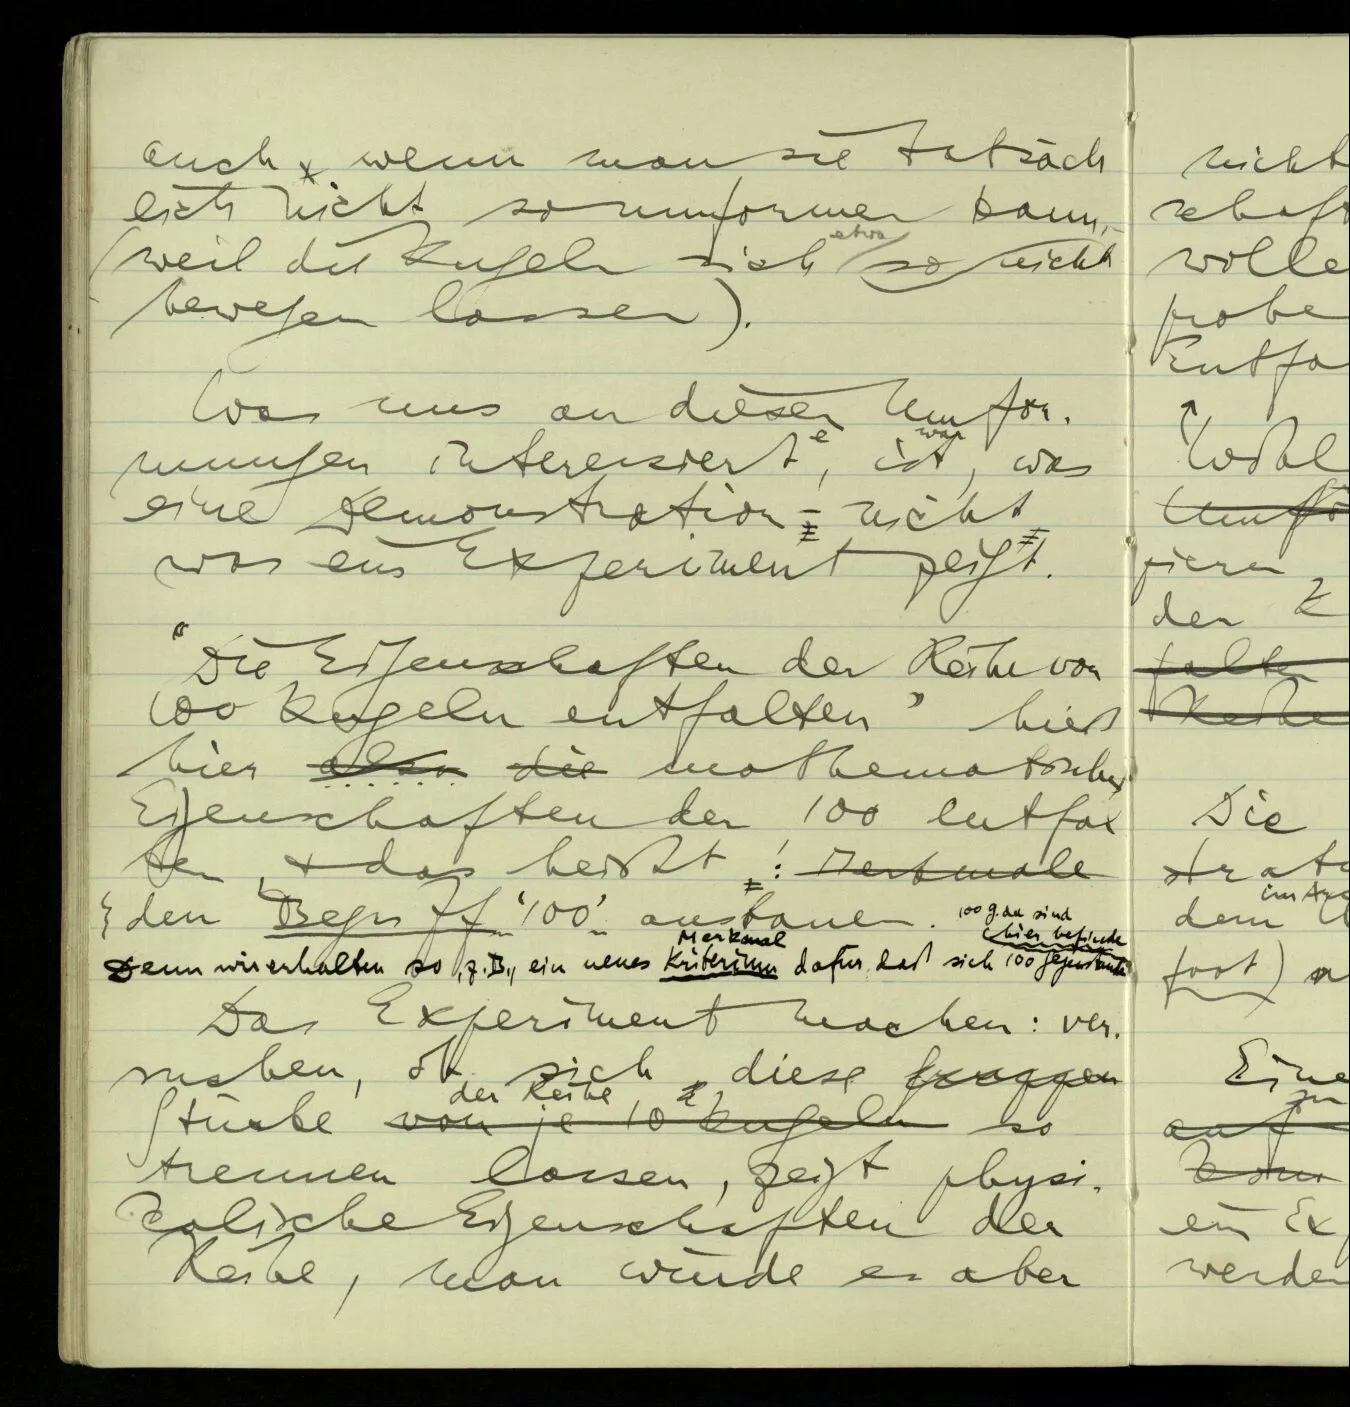 auch, wenn man sie tatsäch
lich nicht so umformen kann,
etwa
(weil die Kugeln sich so nicht
bewegen lassen).
Was uns an diesen Umfor-
mungen interessierte, ist war, was
eine Demonstration – nicht
was ein Experiment zeigt.
"Die Eigenschaften der Reihe von
100 Kugeln entfalten" hieß
hier also die mathematischen
Eigenschaften der 100 entfal
ten, + das heißt: Merkmale
den Begriff '100' ausbauen. 100 g. da sind
Merkmal hier befinde
Denn wir erhalten so, z.B., ein neues Kriterium dafür, daß sich 100 Gegenstände
Das Experiment machen: ver-
suchen, ob sich diese Gruppen
der Reihe
Stücke von je 10 Kugeln so
trennen lassen, zeigt physi-
kalische Eigenschaften der
Reihe, man würde es aber
nicht
schaft
wolle
probe
Entfa
Wohl
Umfo
zieren
den K
falten
Reihe
Die
strati
dem
fort)
Eine
zu
auf
ein Ex
werden